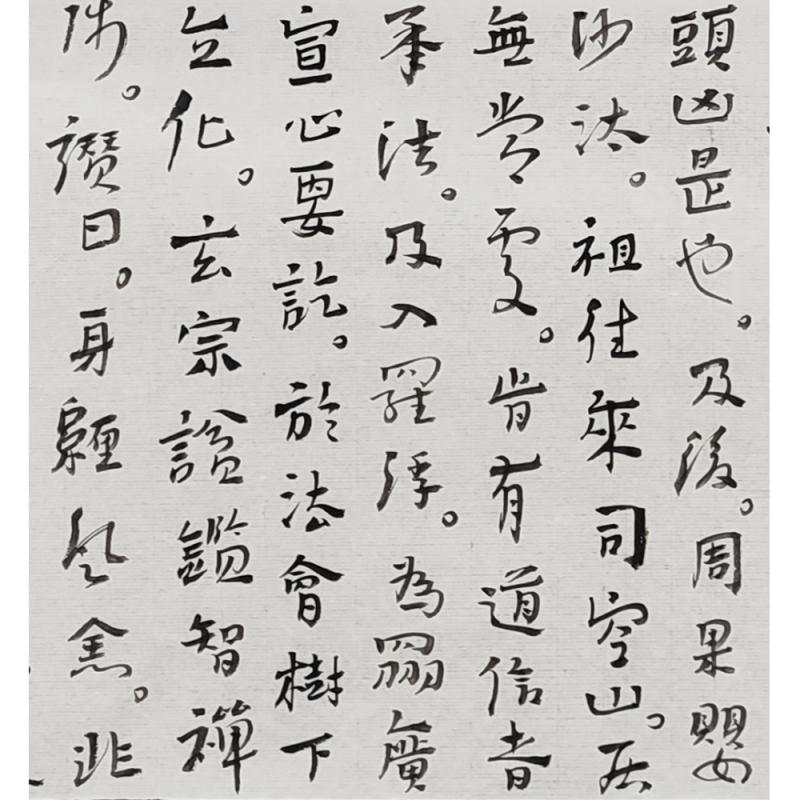 頭凶是也。及後。周果嬰
沙汰。祖往來司空山。居
無常處。旹有道信者
承法。及入羅浮。為眾廣
宣心要訖。於法會樹下
立化。玄宗諡鑑智禪
師。讚曰。身纏風恙。非